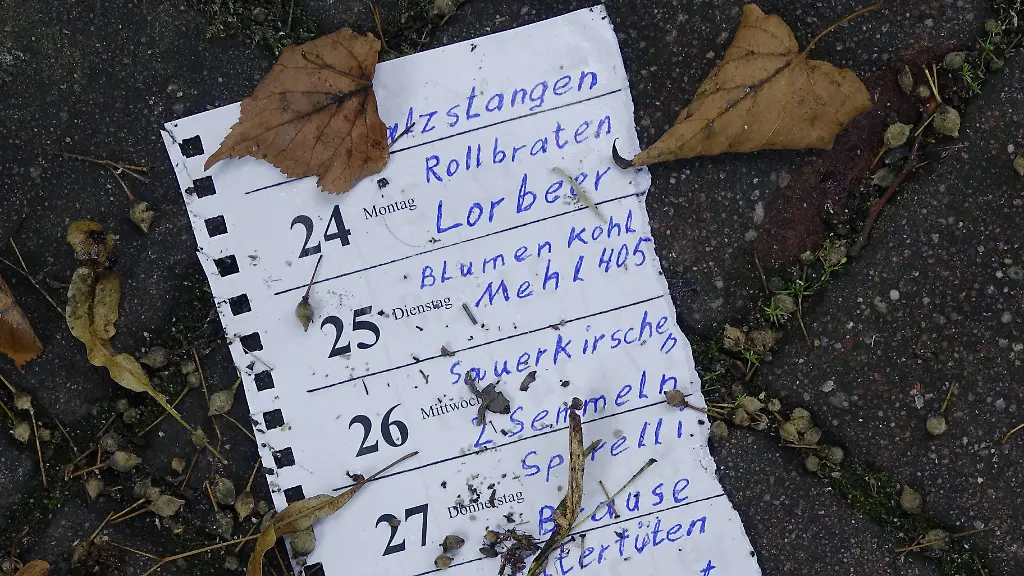 alzstangen
Rollbraten
24 Montag Lorbeer
Blumenkohl
25 Dienstag Mehl 405
Sauerkirschen
26 Mittwoch 2 Semmeln
Spirelli
27 Donnerstag Brause
tertüten